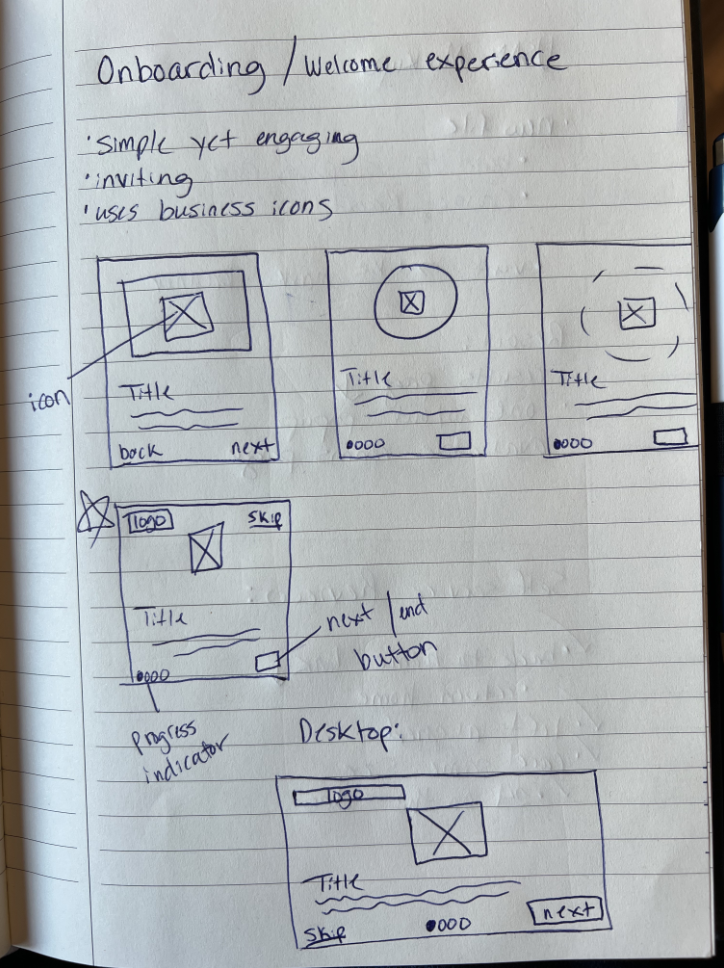 Onboarding / Welcome experience
· simple yet engaging
· inviting
· uses business icons
icon
Title
back next
Title
Title
logo skip
Title
next / end
button
progress
indicator
Desktop:
logo
Title
skip next